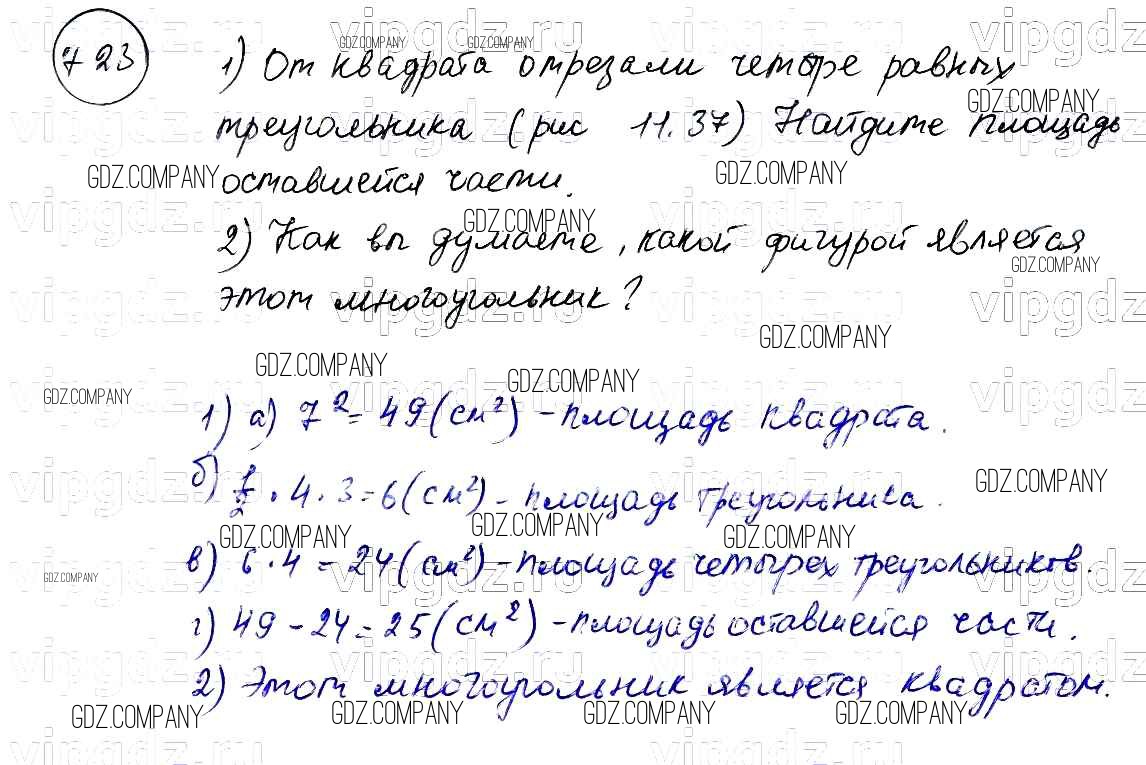 723
1) От квадрата отрезали четыре равных
треугольника (рис 11.37) Найдите площадь
оставшейся части.
2) Как вы думаете, какой фигурой является
этот многоугольник?
1) а) 7² = 49 (см²) - площадь квадрата.
б) 1/2 · 4 · 3 = 6 (см²) - площадь треугольника.
в) 6 · 4 = 24 (см²) - площадь четырех треугольников.
г) 49 - 24 = 25 (см²) - площадь оставшейся части.
2) Этот многоугольник является квадратом.
GDZ.COMPANY
vipgdz.ru